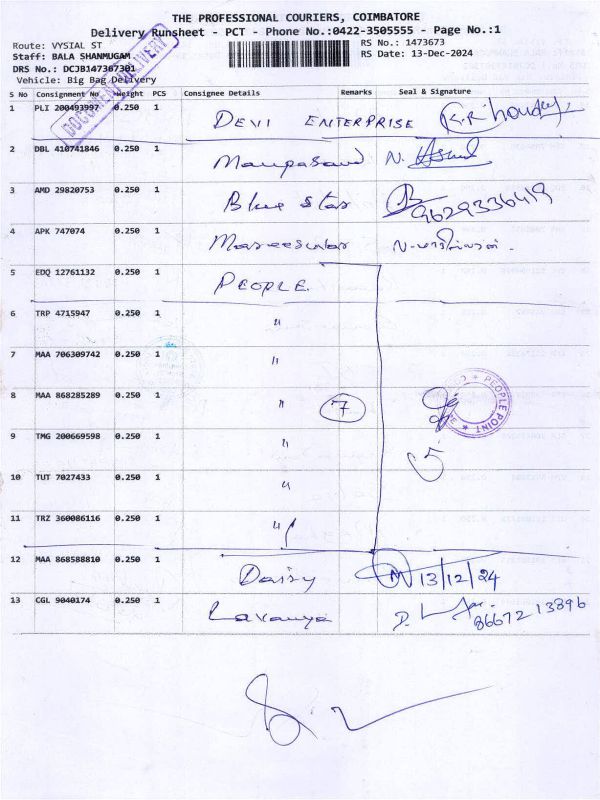 THE PROFESSIONAL COURIERS, COIMBATORE
Delivery Runsheet - PCT - Phone No.:0422-3505555 - Page No.:1
Route: VYSIAL ST RS No.: 1473673
Staff: BALA SHANMUGAM RS Date: 13-Dec-2024
DRS No.: DCJB147367301
Vehicle: Big Bag Delivery
DOCUMENT DELIVERY
S No Consignment No Weight PCS Consignee Details Remarks Seal & Signature
1 PLI 200493997 0.250 1 DEVI ENTERPRISE
2 DBL 410741846 0.250 1 N.
3 AMD 29820753 0.250 1 Blue Star 9629336419
4 APK 747074 0.250 1
5 EDQ 12761132 0.250 1 PEOPLE
6 TRP 4715947 0.250 1 "
7 MAA 706309742 0.250 1 "
8 MAA 868285289 0.250 1 " 7
PEOPLE POINT
9 TMG 200669598 0.250 1 "
10 TUT 7027433 0.250 1 "
11 TRZ 360086116 0.250 1 "
12 MAA 868588810 0.250 1 Daisy 13/12/24
13 CGL 9040174 0.250 1 Lavanya 86672 13896